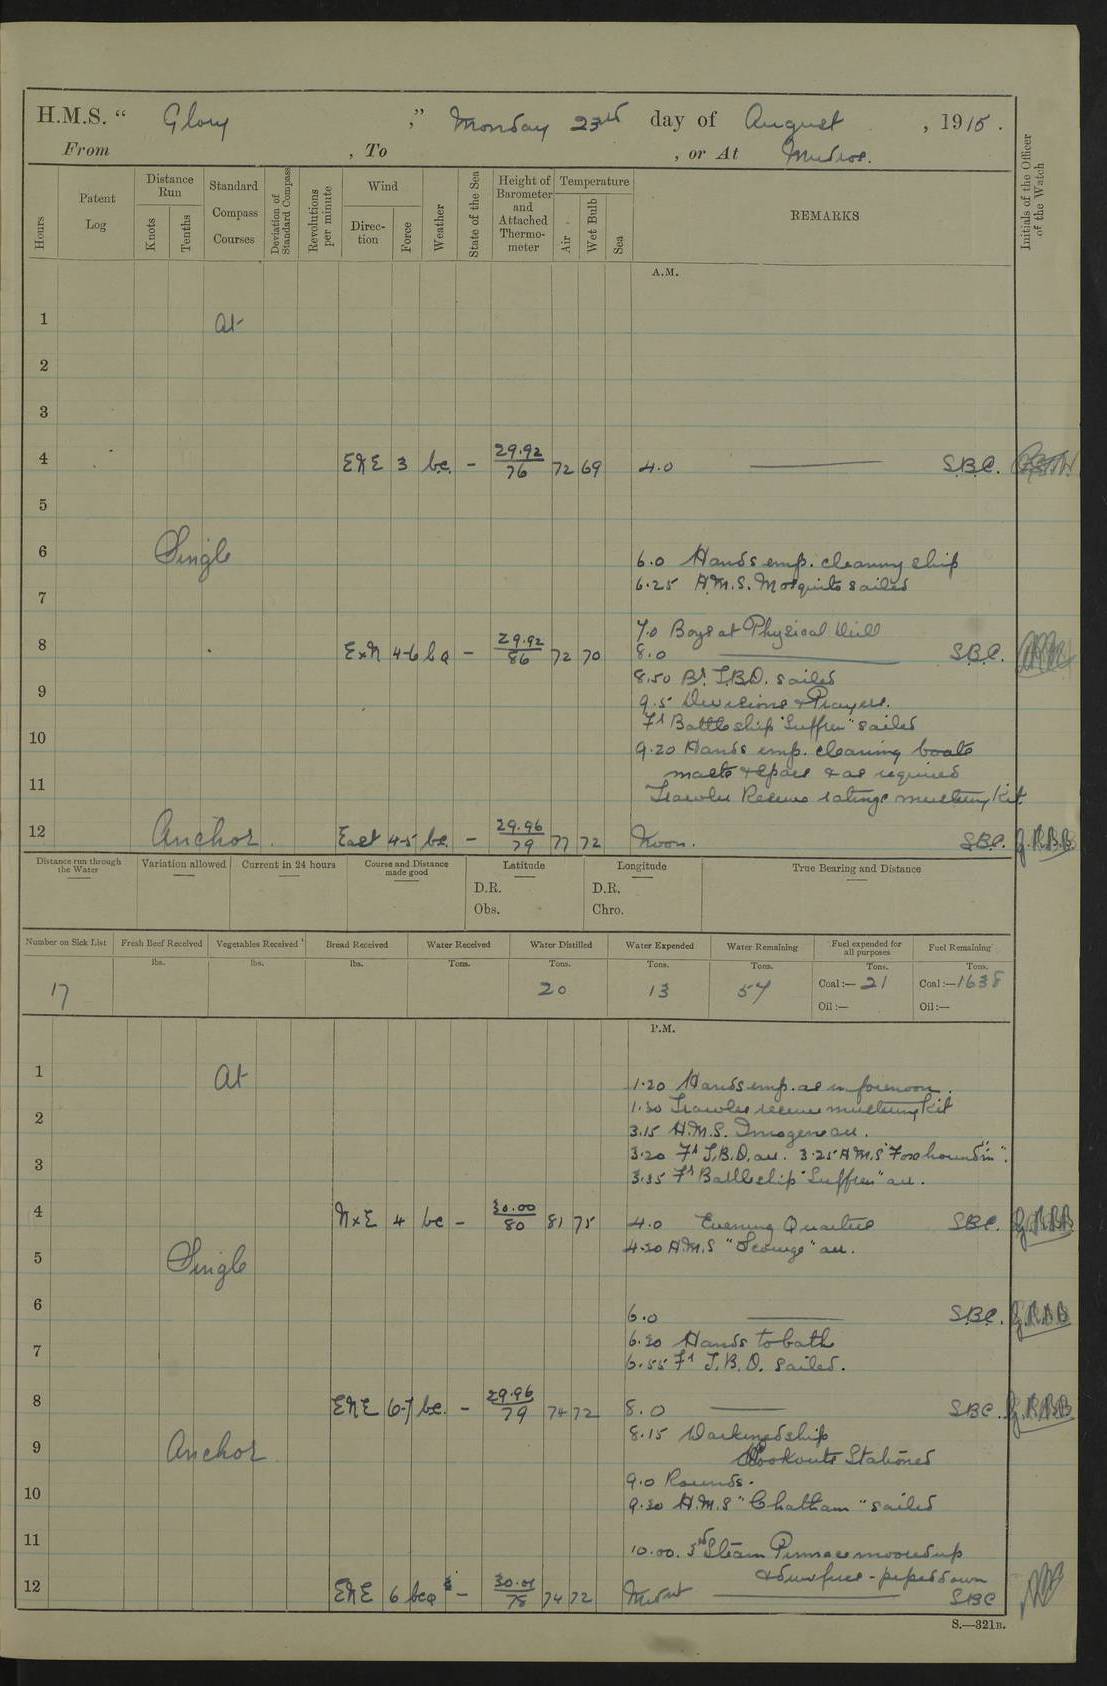 H.M.S. “ Glory ,” Monday 23rd day of August , 1915 .
From , To , or At Mudros.
Hours
Patent Log
Distance Run
Knots
Tenths
Standard Compass Courses
Deviation of Standard Compass
Revolutions per minute
Wind
Direc-tion
Force
Weather
State of the Sea
Height of Barometer and Attached Thermo-meter
Temperature
Air
Wet Bulb
Sea
REMARKS
Initials of the Officer of the Watch
A.M.
1 At
2
3
4 ENE 3 bc. – 29.92/76 72 69 4.0 S.B.C.
5
6 Single 6.0 Hands emp. cleaning ship
6.25 H.M.S. Mosquito sailed
7
7.0 Boys at Physical Drill
8 ExN 4-6 bq – 29.92/86 72 70 8.0 S.B.C.
8.50 Br. T.B.D. sailed
9 9.5 Divisions & Prayers.
Fr Battleship "Suffren" sailed
10 9.20 Hands emp. cleaning boats
masts & spars & as required
11 Trawler Reserve ratings mustering Kit
12 Anchor East 4-5 bc. – 29.96/79 77 72 Noon. S.B.C. J.R.B.B.
Distance run through the Water
Variation allowed
Current in 24 hours
Course and Distance made good
Latitude
D.R.
Obs.
Longitude
D.R.
Chro.
True Bearing and Distance
Number on Sick List
Fresh Beef Received
Vegetables Received
Bread Received
Water Received
Water Distilled
Water Expended
Water Remaining
Fuel expended for all purposes
Fuel Remaining
lbs. lbs. lbs. Tons. Tons. Tons. Tons. Tons. Tons.
17 20 13 54 Coal :— 21 Coal :— 1638
Oil :— Oil :—
P.M.
1 At 1.20 Hands emp. as in forenoon.
2 1.30 Trawler reserve mustering Kit
3.15 H.M.S. Imogene arr.
3 3.20 Fr T.B.D. arr. 3.25 H.M.S "Foxhound in".
3.35 Fr Battleship "Suffren" arr.
4 NxE 4 bc – 30.00/80 81 75 4.0 Evening Quarters S.B.C. J.R.B.B
5 Single 4.30 H.M.S "Scourge" arr.
6 6.0 S.B.C. J.R.B.B
6.30 Hands to bathe
7 6.55 Fr T.B.D. sailed.
8 ENE 6-7 bc. – 29.96/79 74 72 8.0 S.B.C. J.R.B.B
8.15 Darkened ship
9 Anchor Lookouts Stationed
9.0 Rounds.
10 9.30 H.M.S "Chatham" sailed
11 10.00. 3rd Steam Pinnace moored up
& drew fires - piped down
12 ENE 6 bcq – 30.01/78 74 72 Midnt SBC
S.—321B.